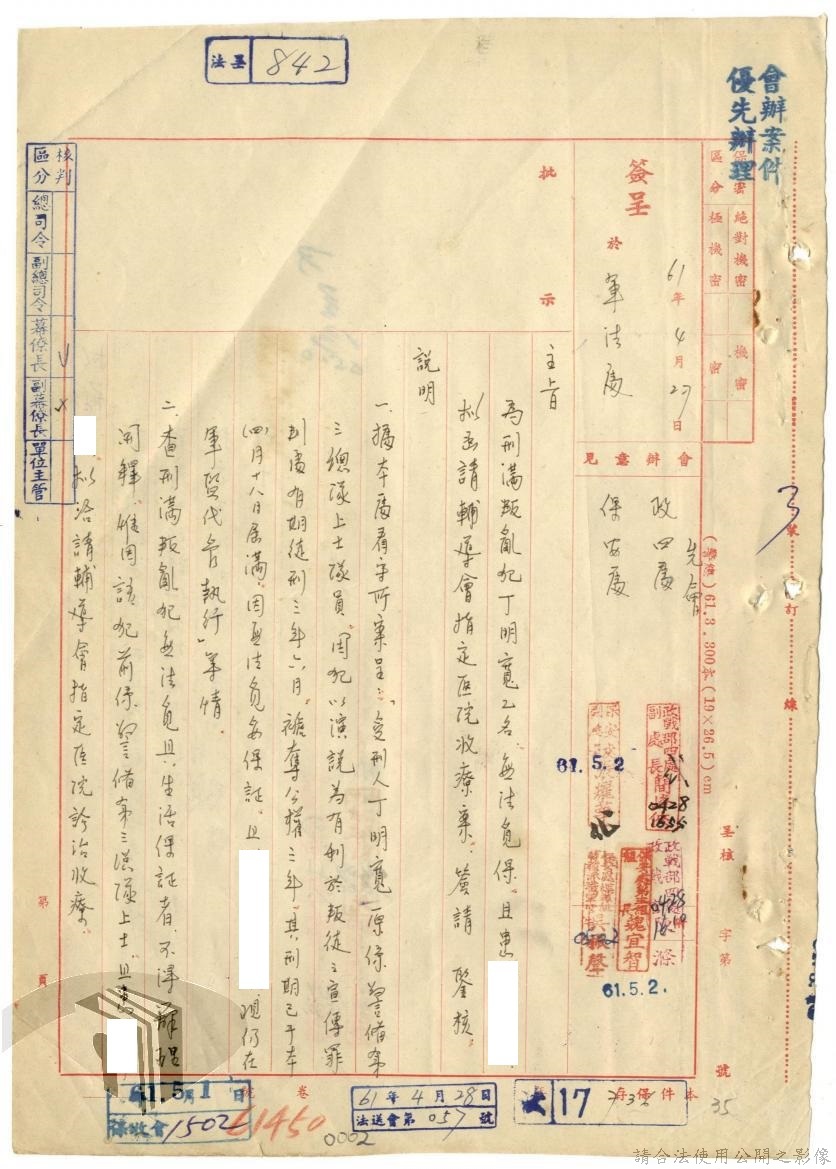 法墨 842
會辦案件
優先辦理
保密區分
絕對機密
極機密
機密
密
簽呈
於
軍法處
61年4月27日
批示
會辦意見
先會
政四處
保安處
主旨
為刑滿叛亂犯丁明寬乙名,無法覓保,且患
擬函請輔導會指定医院收療案,簽請 鑒核。
説明
一、據本處看守所案呈:「受刑人丁明寬,原係警備第
三總隊上士隊員,因犯以演説為有利於叛徒之宣傳罪
判處有期徒刑三年六月,褫奪公權三年,其刑期已于本
(四)月十八日屆滿,因無法覓妥保証,且
現仍在
軍監代舍執行」等情。
二、查刑滿叛亂犯無法覓具生活保証者,不得辦理
開釋,惟因該犯前係警備第三總隊上士,且患
擬洽請輔導會指定医院診治收療。
核判區分
總司令
副總司令
幕僚長
副幕僚長
單位主管
裝
訂
線
61.3.300本(19×26.5)cm
61.5.2
0428
魏宜智
61.5.2.
字第
號
第
頁
61.5月1日
1502
61450
卷
61年4月28日
法送會第057號
0002
17
本件保存
35
請合法使用公開之影像